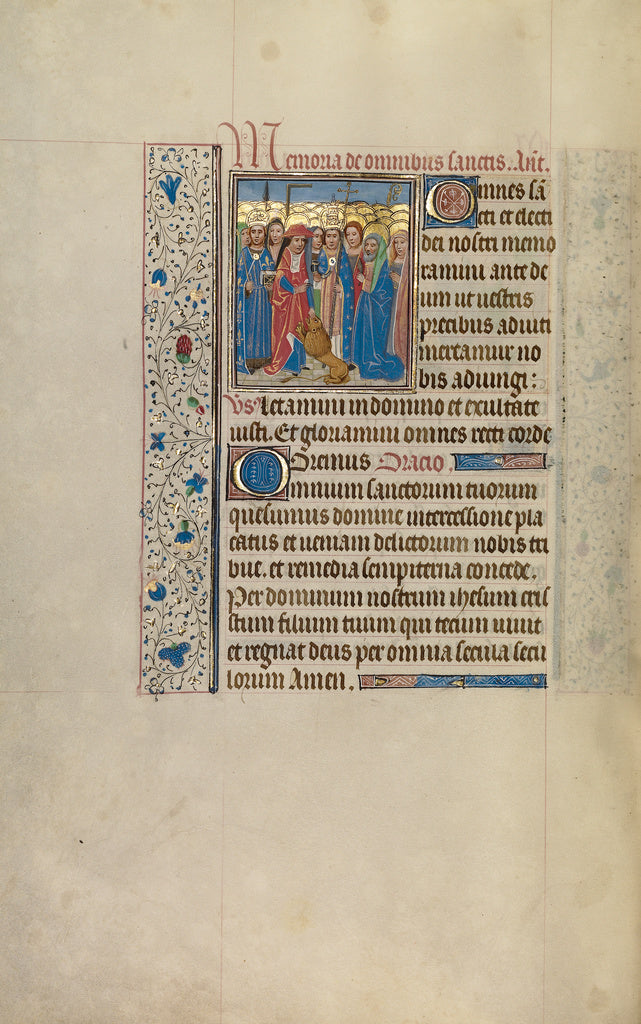 Memoria de omnibus sanctis. Ant.
Omnes sā
cti et electi
dei nostri memo
ramini ante de
um ut uestris
precibus adiuti
mereamur uo
bis adiungi:
Vs Letamini in domino et exultate
iusti. Et gloriamini omnes recti corde
Oremus Oracio
Omnium sanctorum tuorum
quesumus domine intercessione pla
catus et ueniam delictorum nobis tri
bue. et remedia sempiterna concede.
Per dominum nostrum ihesum cris
stum filium tuum qui tecum uiuit
et regnat deus per omnia secula secu
lorum Amen.